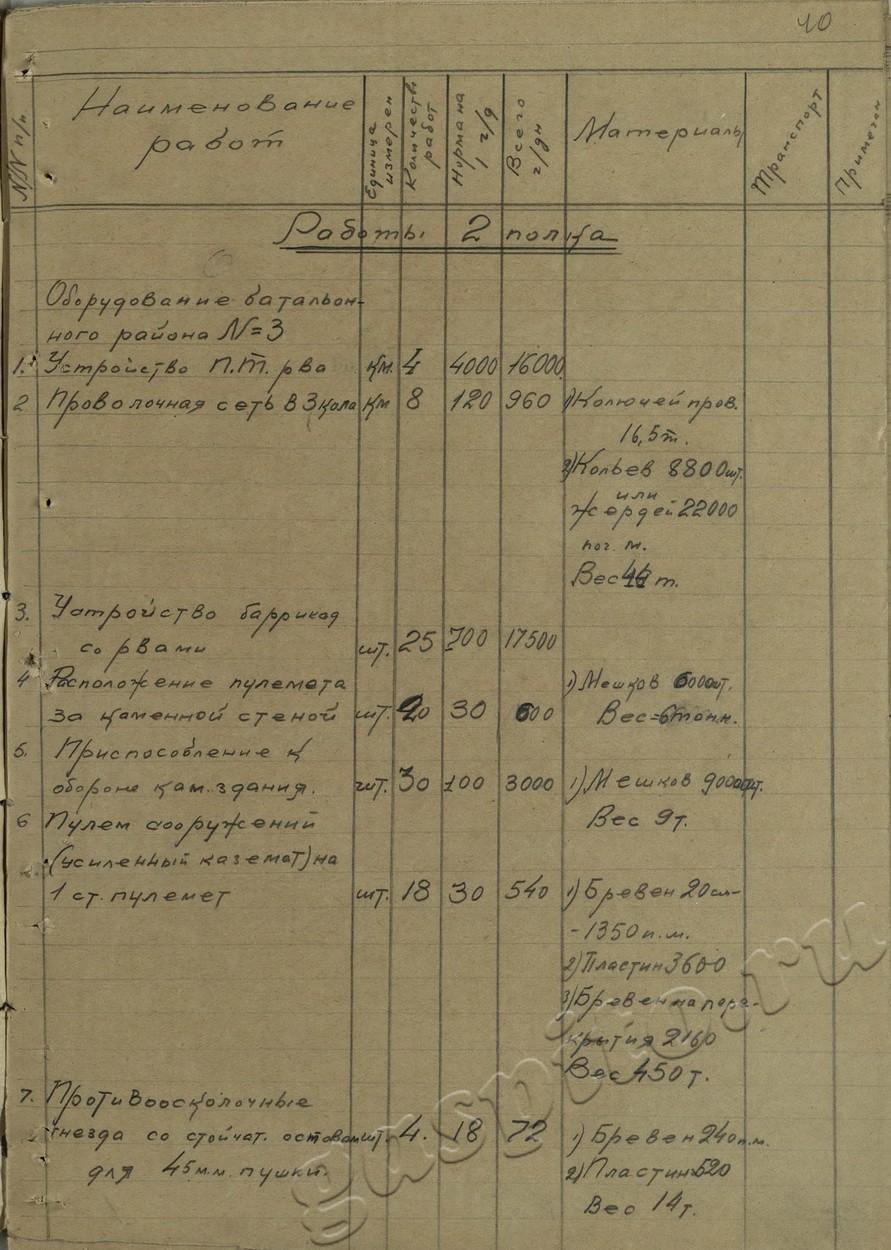 40
NN п/п
Наименование
работ
Единица
измерен
Количеств
работ
Нормана
1 ч/д
Всего
ч/дн
Материалы
Транспорт
Примечен
Работы 2 полка
Оборудование батальон-
ного района N=3
1. Устройство П.Т. рва км. 4 4000 16000
2 Проволочная сеть в 3 кола км 8 120 960 1) Колючей пров.
16,5 т.
2) Кольев 8800 шт.
или
жердей 22000
пог. м.
Вес т.
3. Устройство баррикад
со рвами шт. 25 700 17500
4 Расположение пулемета 1) Мешков 6000 шт.
за каменной стеной шт. 20 30 600 Вес = 6 тонн.
5. Приспособление к
обороне кам. здания. шт. 30 100 3000 1) Мешков 9000 шт.
6 Пулем сооружений Вес 9 т.
(усиленный каземат) на
1 ст. пулемет шт. 18 30 540 1) Бревен 20 см-
-1350 п.м.
2) Пластин 3600
3) Бревен на пере-
крытия 2160
Вес 450 т.
7. Противоосколочные
гнезда со стойчат. остовам шт. 4. 18 72 1) Бревен 240 п.м.
для 45 м.м. пушки. 2) Пластин 520
Вес 14 т.